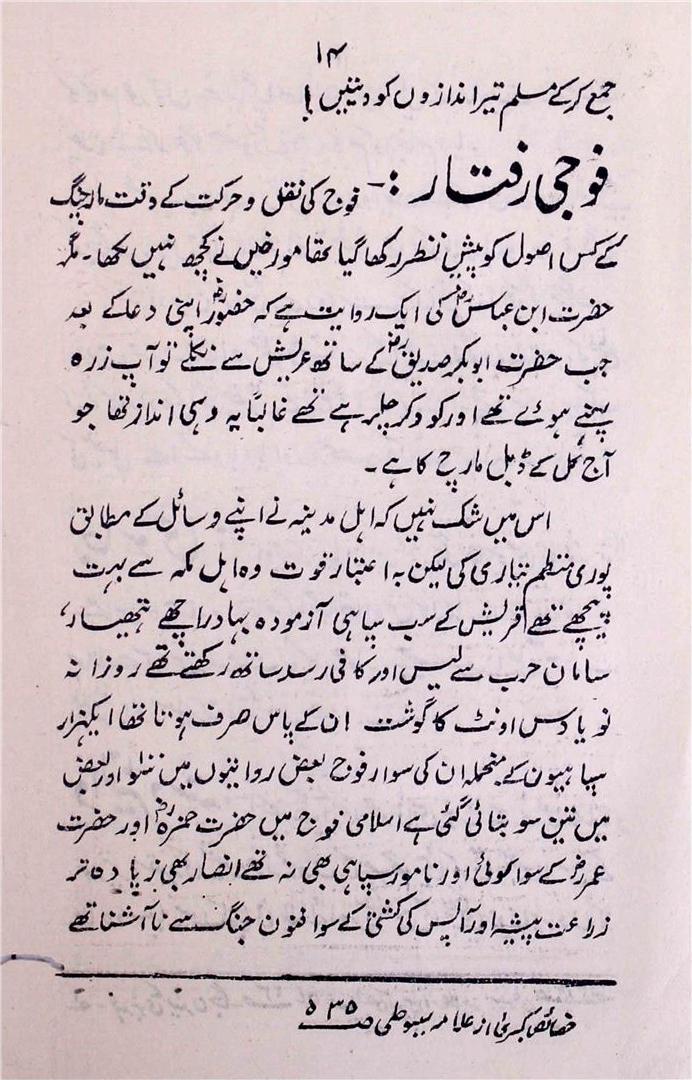 ۱۴
جمع کرکے مسلم تیر اندازوں کو دیتیں!
فوجی رفتار :- فوج کی نقل و حرکت کے وقت مارچنگ
کے کس اصول کو پیش نظر رکھا گیا تھا مورخین نے کچھ نہیں لکھا۔ مگر
حضرت ابن عباسؓ کی ایک روایت ہے کہ حضورؐ اپنی دعا کے بعد
جب حضرت ابوبکر صدیقؓ کے ساتھ عریش سے نکلے تو آپ زرہ
پہنے ہوئے تھے اور کود کر چل رہے تھے غالباً یہ وہی انداز تھا جو
آج کل کے ڈبل مارچ کا ہے۔
اس میں شک نہیں کہ اہل مدینہ نے اپنے وسائل کے مطابق
پوری منظم تیاری کی لیکن بہ اعتبار قوت وہ اہل مکہ سے بہت
پیچھے تھے قریش کے سب سپاہی آزمودہ بہادر اچھے ہتھیار،
سامان حرب سے لیس اور کافی رسد ساتھ رکھتے تھے روزانہ
نو یا دس اونٹ کا گوشت ان کے پاس صرف ہوتا تھا ایکہزار
سپاہیوں کے منجملہ ان کی سوار فوج بعض روایتوں میں سو اور بعض
میں تین سو بتائی گئی ہے اسلامی فوج میں حضرت حمزہؓ اور حضرت
عمرؓ کے سوا کوئی اور نامور سپاہی بھی نہ تھے انصار بھی زیادہ تر
زراعت پیشہ اور آپس کی کشتی کے سوا فنون جنگ سے ناآشنا تھے
خصائص کبریٰ از علامہ سیوطی صـ ۵۳۵